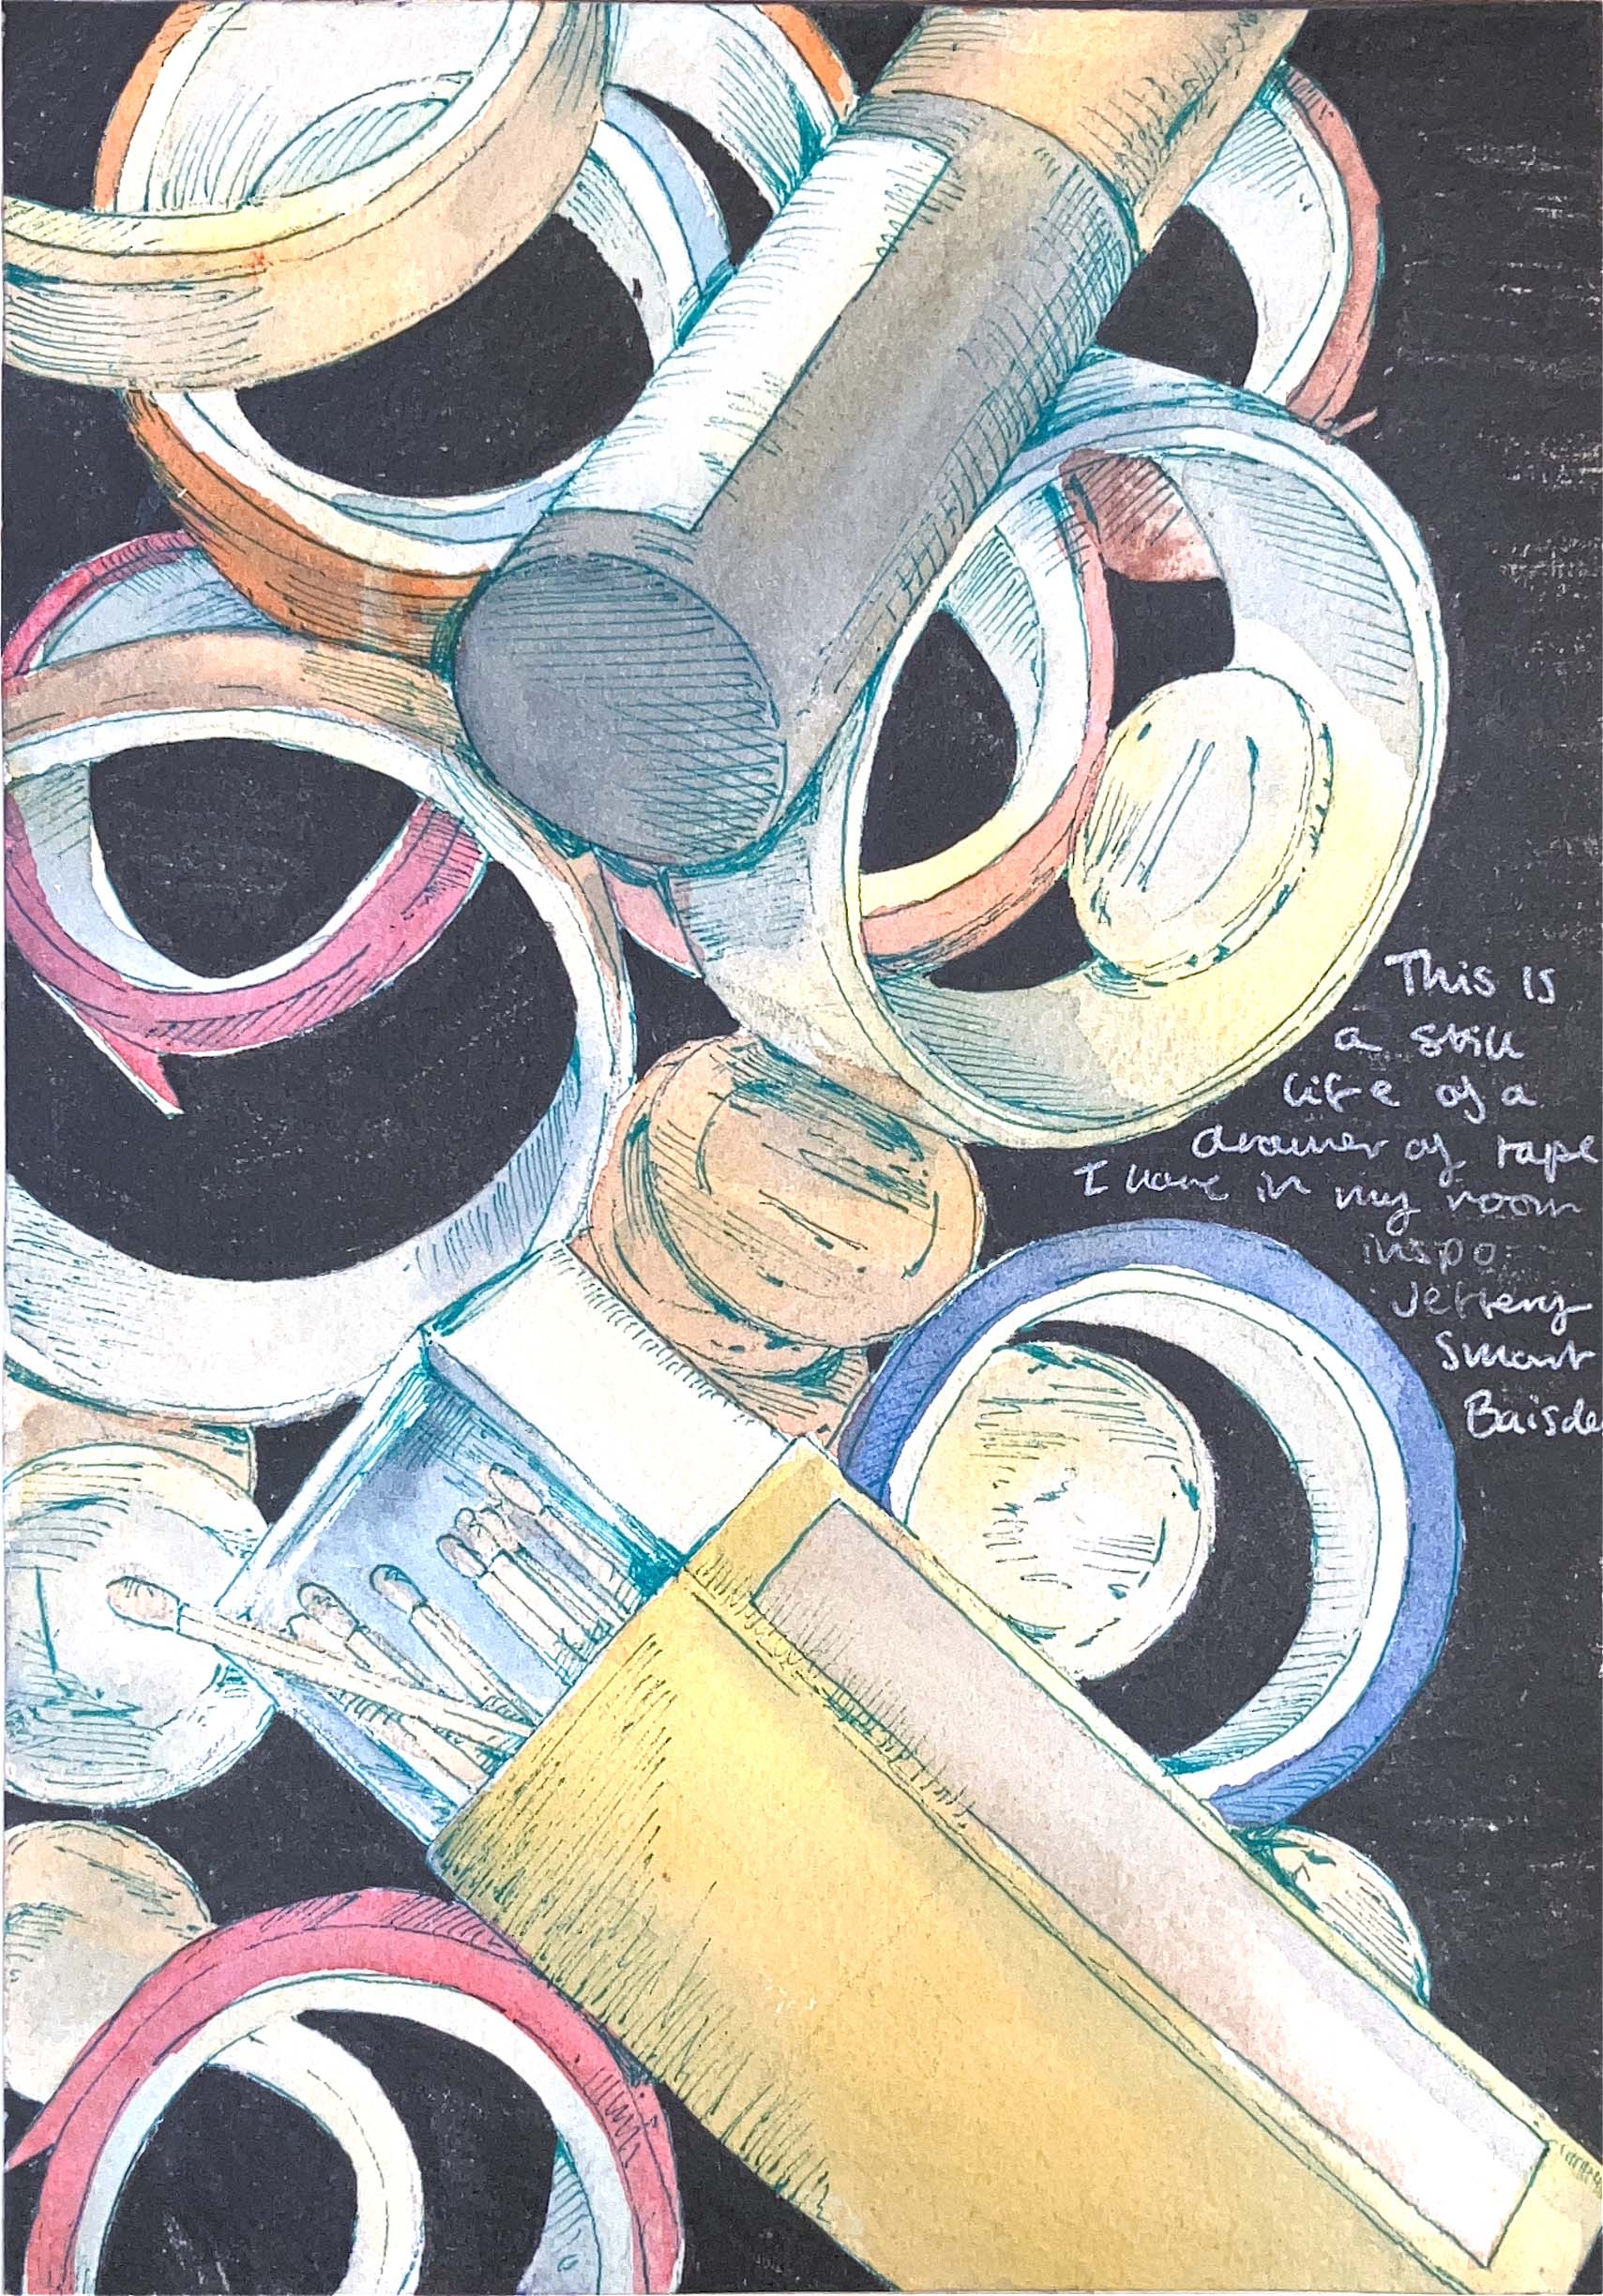 This is
a still
life of a
drawer of tape
I have in my room
inspo:
Jeffery
Smart
Baisde